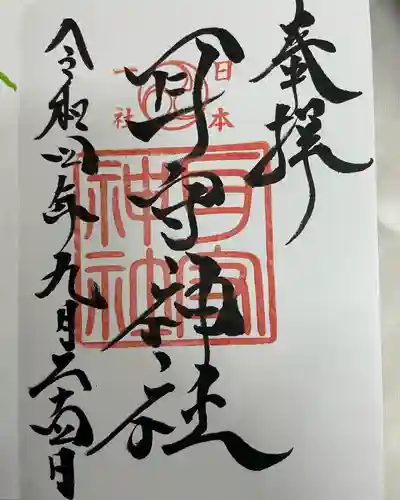 奉拝
日本
一社
耳守神社
耳守
神社
令和四年九月二十四日